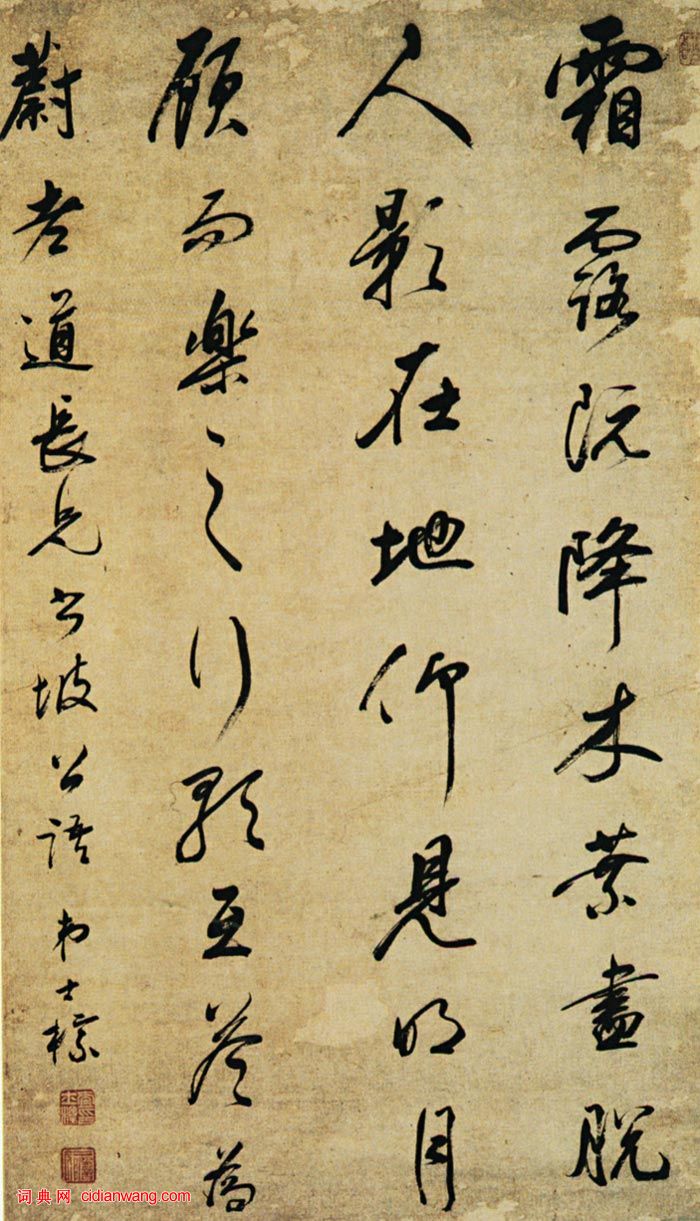 霜露既降木葉盡脫
人影在地仰見明月
顧而樂之行歌互答為
蔚老道長兄書坡公語 弟士標
词典网 cidianwang.com